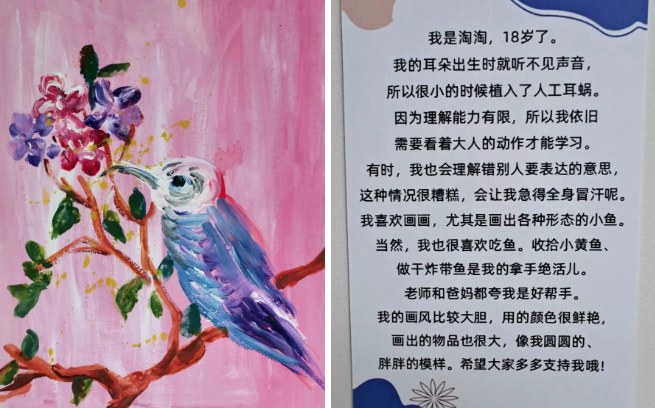 我是淘淘，18岁了。
我的耳朵出生时就听不见声音，
所以很小的时候植入了人工耳蜗。
因为理解能力有限，所以我依旧
需要看着大人的动作才能学习。
有时，我也会理解错别人要表达的意思，
这种情况很糟糕，会让我急得全身冒汗呢。
我喜欢画画，尤其是画出各种形态的小鱼。
当然，我也很喜欢吃鱼。收拾小黄鱼、
做干炸带鱼是我的拿手绝活儿。
老师和爸妈都夸我是好帮手。
我的画风比较大胆，用的颜色很鲜艳，
画出的物品也很大，像我圆圆的、
胖胖的模样。希望大家多多支持我哦！